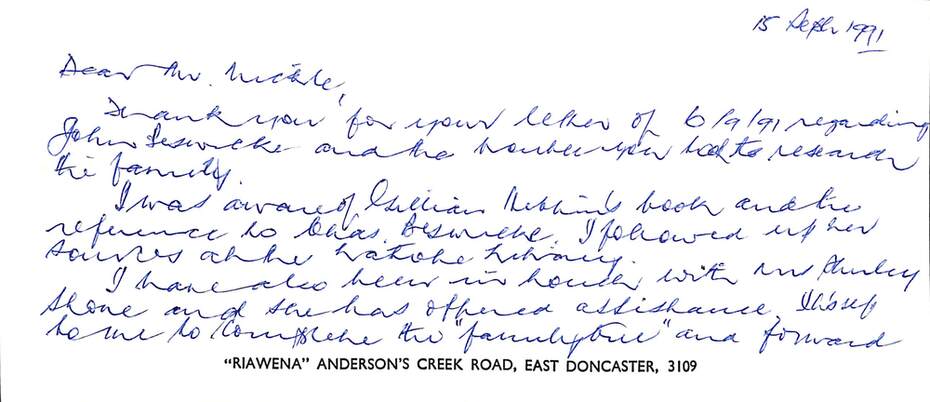 15 Sept 1991
Dear Mr. Nickle,
Thank you for your letter of 6/9/91 regarding
John Beswicke and the trouble you took to research
the family.
I was aware of Gillian Hibbins book and the
reference to Chas. Beswicke. I followed up her
sources at the Latrobe Library.
I have also been in touch with Mrs Shirley
Shone and she has offered assistance. It is up
to me to complete the "family tree" and forward
"RIAWENA" ANDERSON'S CREEK ROAD, EAST DONCASTER, 3109